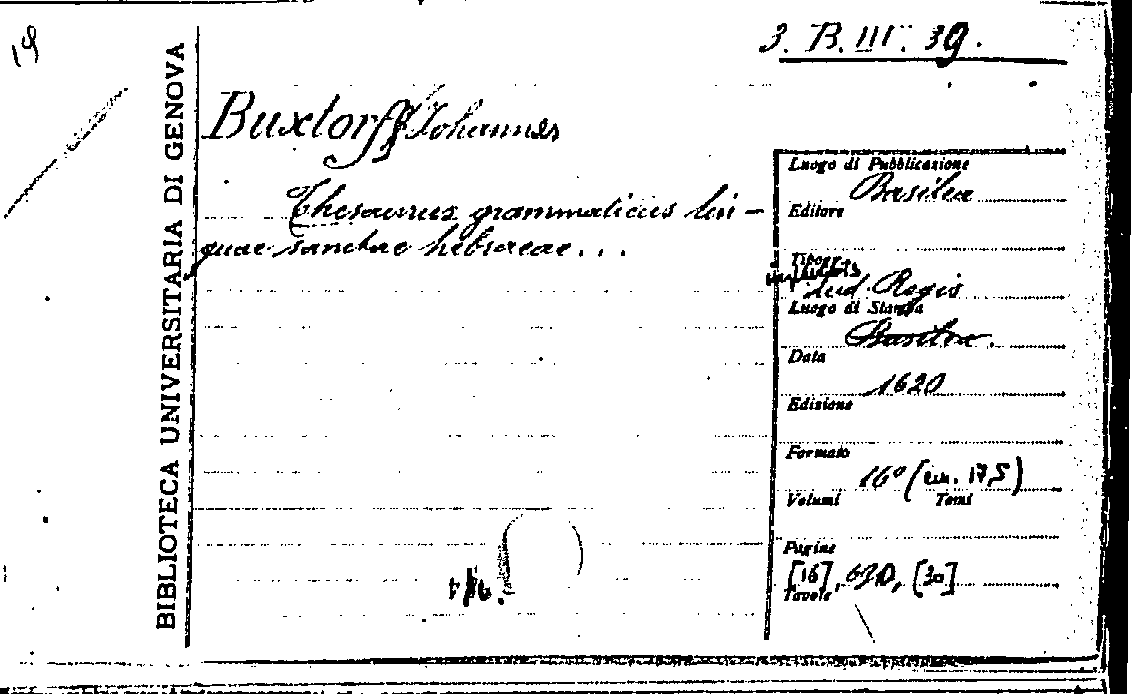 19
3. B. III. 39.
BIBLIOTECA UNIVERSITARIA DI GENOVA
Buxtorff Johannes
Thesaurus grammaticus lin-
guae sanctae hebraeae...
Luogo di Pubblicazione
Basilea
Editore
Tipogr.
impensis
Lud. Regis
Luogo di Stampa
Basilea.
Data
1620
Edizione
Formato
16° (cm. 17,5)
Volumi Tomi
Pagine
[16], 690, [30]
Tavole